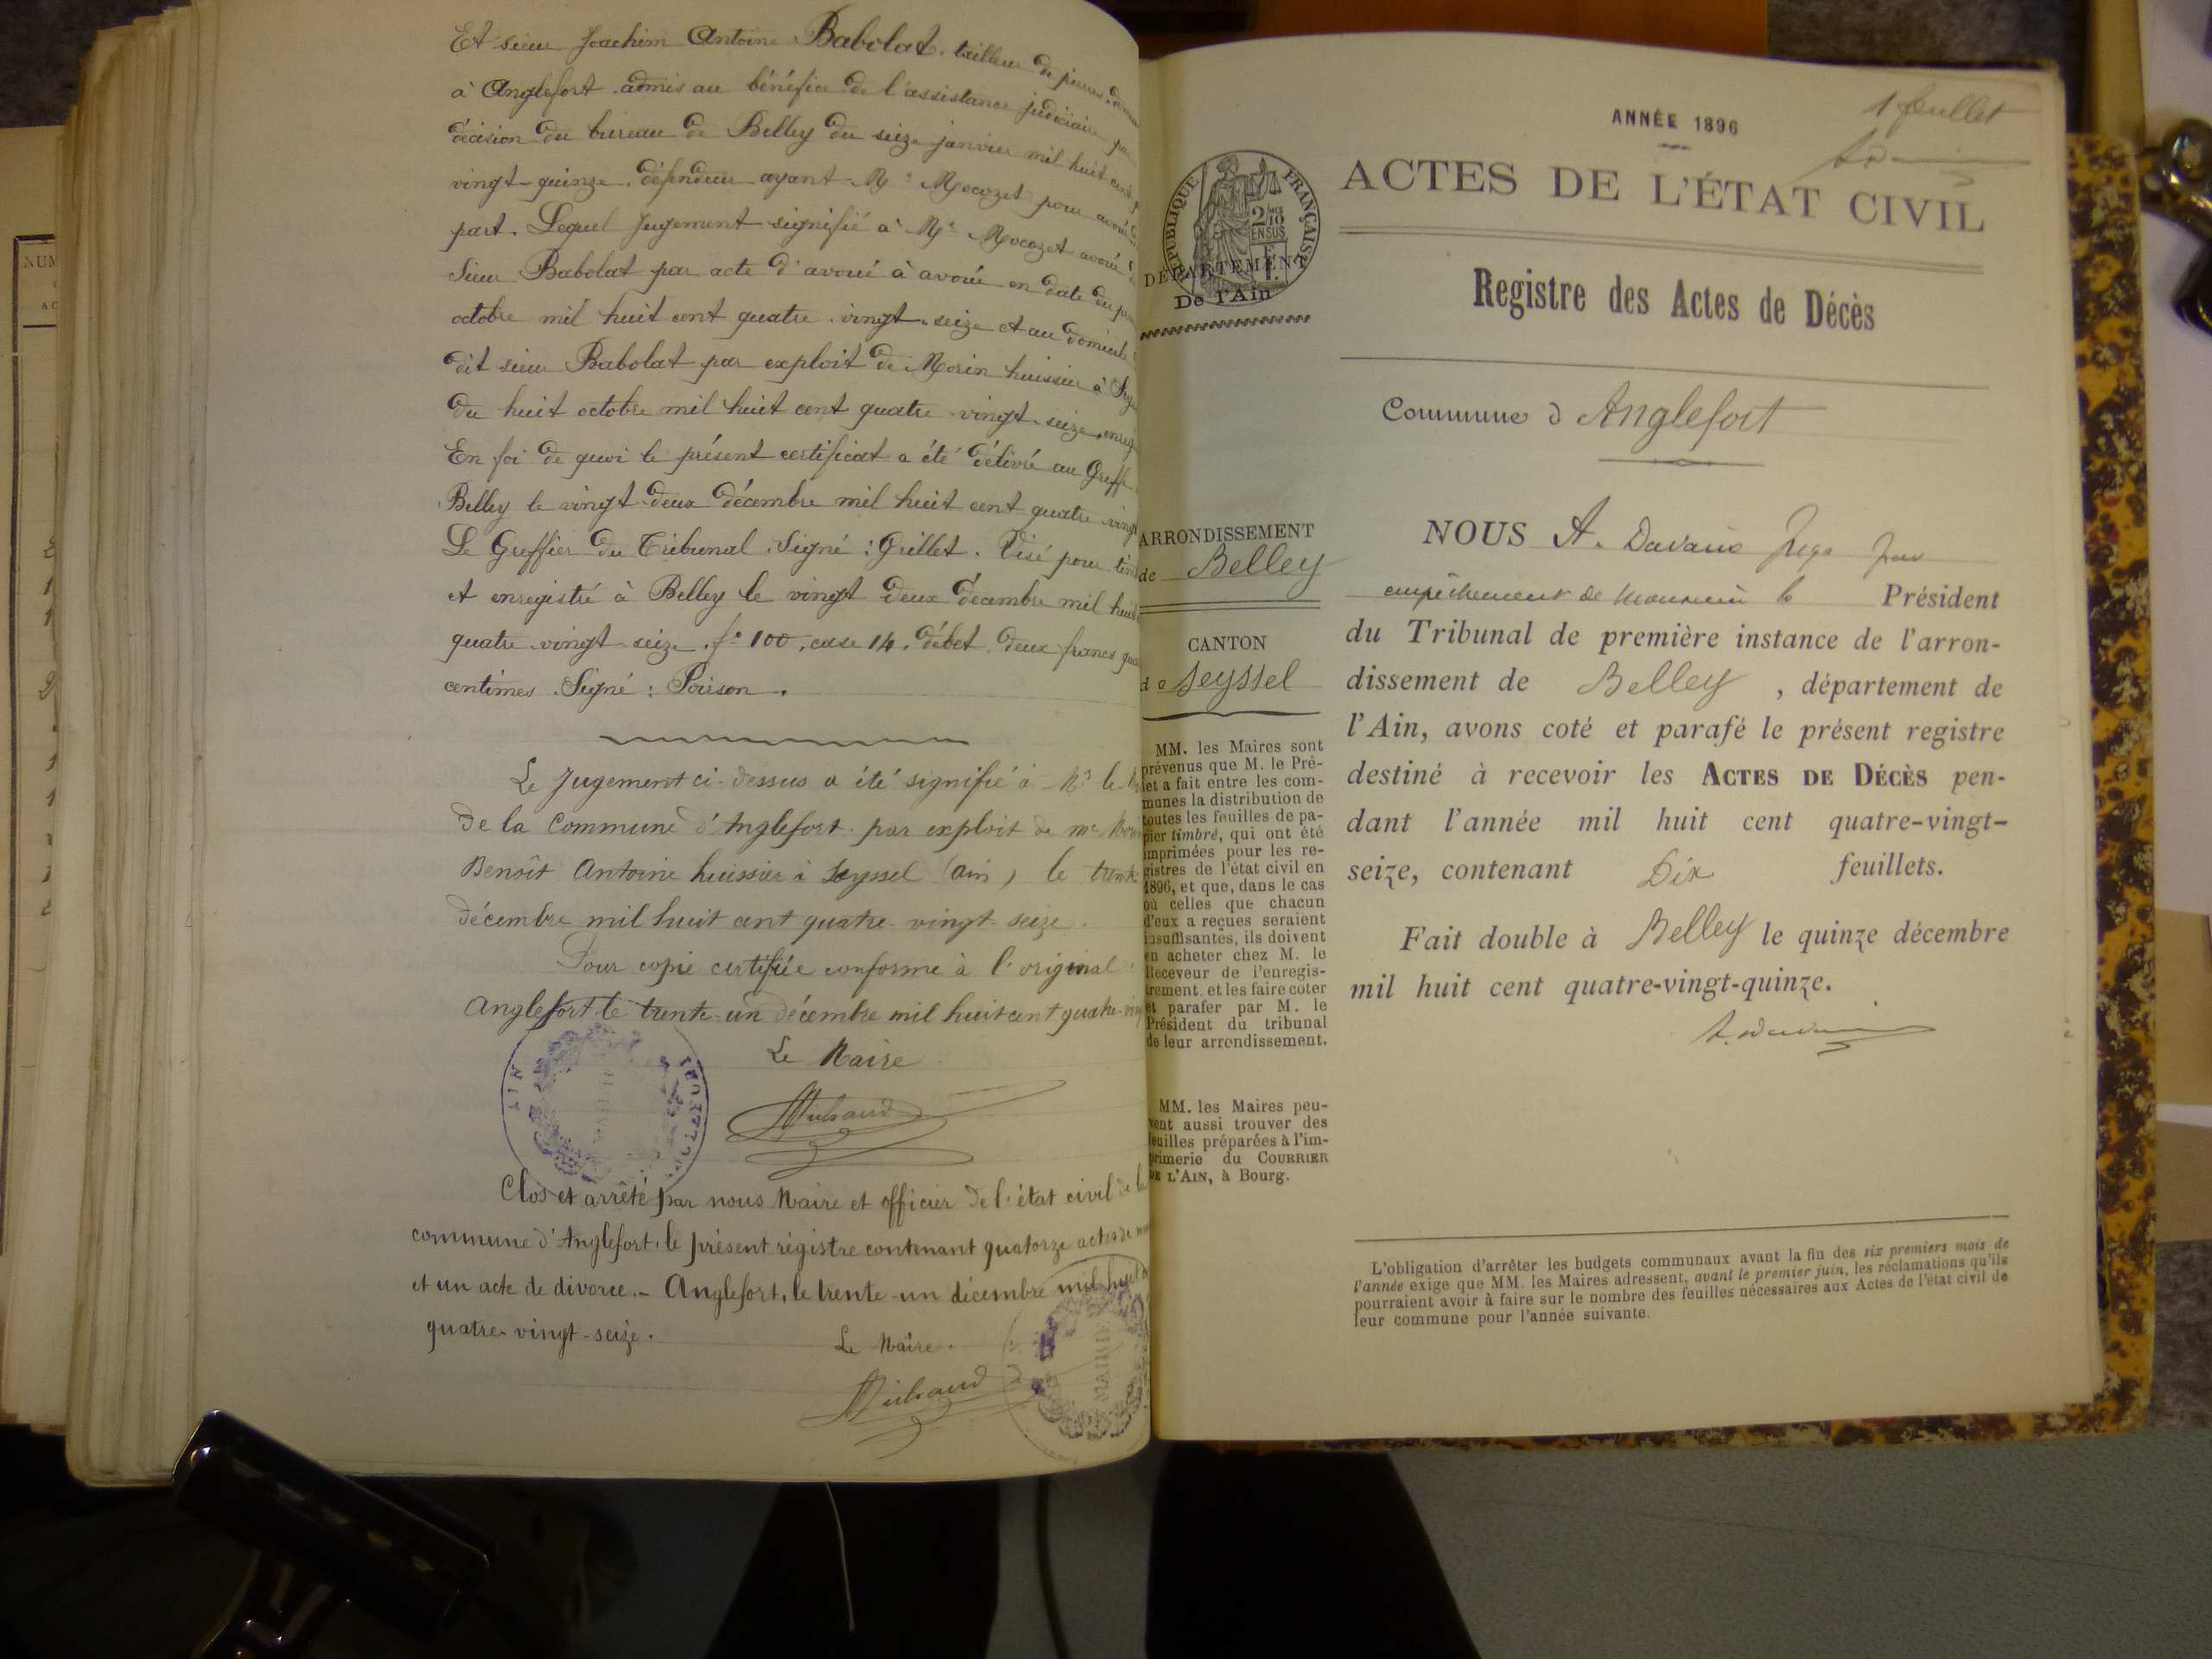 Et sieur Joachim Antoine Babolat, tailleur de pierres,
à Anglefort admis au bénéfice de l'assistance judiciaire
décision du bureau de Belley du seize janvier mil huit cent
vingt-quinze, défendeur ayant Me Mocozet pour avoué
part. Lequel Jugement signifié à Me Mocozet avoué
Sieur Babolat par acte d'avoué à avoué en date du
octobre mil huit cent quatre-vingt-seize et au domicile
dit sieur Babolat par exploit de Morin huissier à
du huit octobre mil huit cent quatre-vingt-seize,
En foi de quoi le présent certificat a été délivré au Greffe
Belley le vingt-deux décembre mil huit cent quatre
Le Greffier du Tribunal. Signé : Grillet. Visé pour
et enregistré à Belley le vingt deux décembre mil huit
quatre-vingt-seize. fo 100, case 14, débet deux francs
centimes. Signé : Poirson.
Le Jugement ci-dessus a été signifié à Mr le
de la Commune d'Anglefort par exploit de me
Benoît Antoine huissier à Seyssel (Ain) le trente
décembre mil huit cent quatre-vingt-seize.
Pour copie certifiée conforme à l'original
Anglefort le trente-un décembre mil huit cent quatre
Le Maire
AIN
Clos et arrêté par nous Maire et officier de l'état civil de la
commune d'Anglefort, le présent régistre contenant quatorze actes de
et un acte de divorce.- Anglefort, le trente-un décembre mil huit
quatre-vingt-seize.
Le Maire.
1 feuillet
ANNÉE 1896
ACTES DE L'ÉTAT CIVIL
RÉPUBLIQUE FRANÇAISE
2 DES 10 EN SUS
DÉPARTEMENT
De l'Ain
Registre des Actes de Décès
Commune d Anglefort
ARRONDISSEMENT
de Belley
CANTON
de Seyssel
MM. les Maires sont
prévenus que M. le Pré-
fet a fait entre les com-
munes la distribution de
toutes les feuilles de pa-
pier timbré, qui ont été
imprimées pour les re-
gistres de l'état civil en
1896, et que, dans le cas
où celles que chacun
d'eux a reçues seraient
insuffisantes, ils doivent
en acheter chez M. le
Receveur de l'enregis-
trement, et les faire coter
et parafer par M. le
Président du tribunal
de leur arrondissement.
MM. les Maires peu-
vent aussi trouver des
feuilles préparées à l'im-
primerie du COURRIER
DE L'AIN, à Bourg.
NOUS A. Davaine Juge par
empêchement de Monsieur le Président
du Tribunal de première instance de l'arron-
dissement de Belley, département de
l'Ain, avons coté et parafé le présent registre
destiné à recevoir les ACTES DE DÉCÈS pen-
dant l'année mil huit cent quatre-vingt-
seize, contenant Dix feuillets.
Fait double à Belley le quinze décembre
mil huit cent quatre-vingt-quinze.
L'obligation d'arrêter les budgets communaux avant la fin des six premiers mois de
l'année exige que MM. les Maires adressent, avant le premier juin, les réclamations qu'ils
pourraient avoir à faire sur le nombre des feuilles nécessaires aux Actes de l'état civil de
leur commune pour l'année suivante.